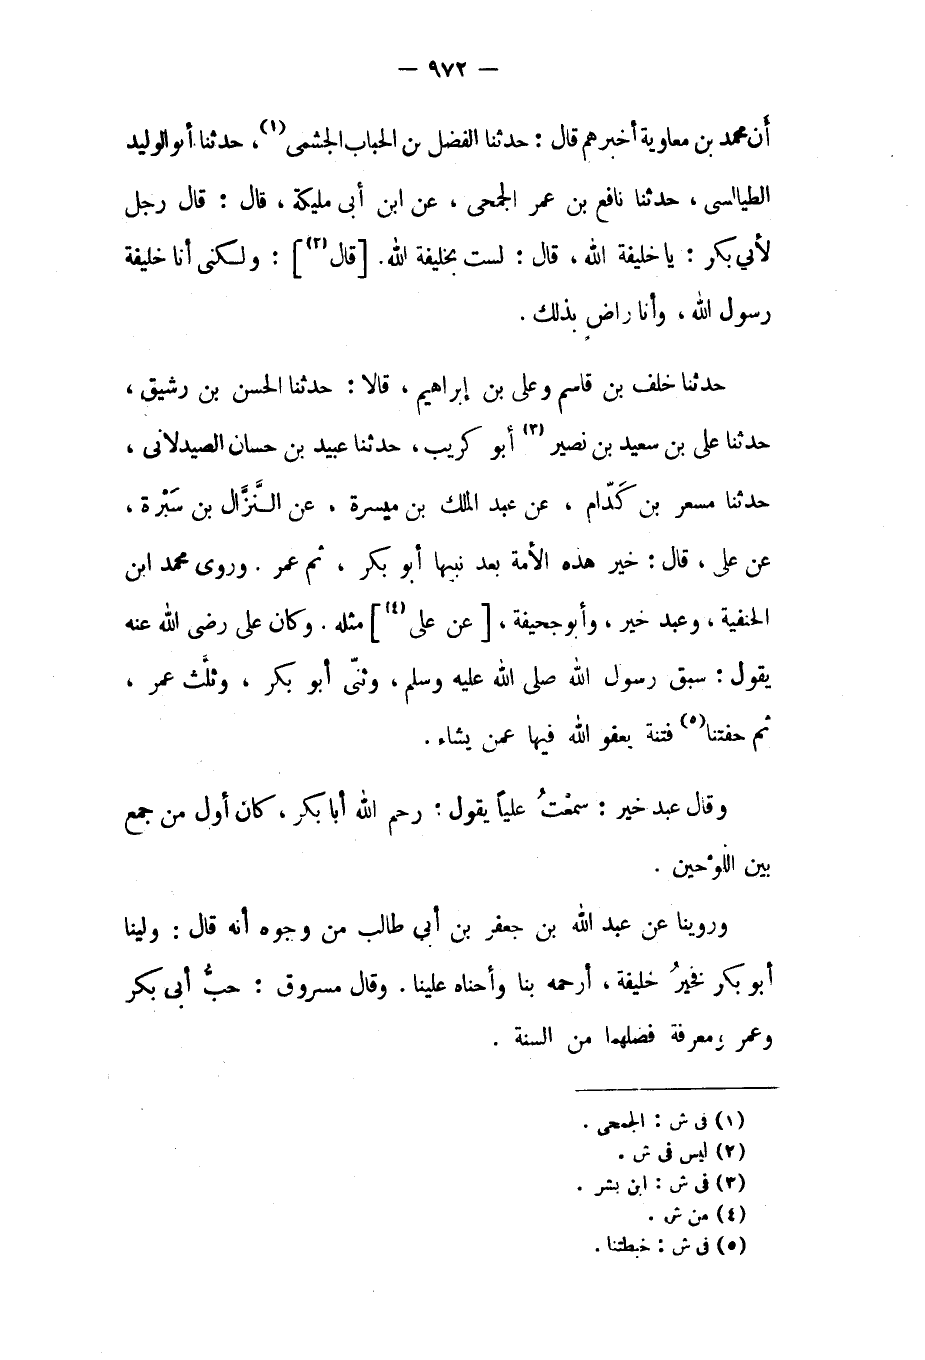 — ٩٧٢ —
أن محمد بن معاوية أخبرهم قال : حدثنا الفضل بن الحباب الجشمى(١)، حدثنا أبو الوليد
الطيالسى ، حدثنا نافع بن عمر الجمحى ، عن ابن أبى مليكة ، قال : قال رجل
لأبي بكر : يا خليفة الله ، قال : لست بخليفة الله. [قال(٢)] : ولكنى أنا خليفة
رسول الله ، وأنا راضٍ بذلك .
حدثنا خلف بن قاسم وعلى بن إبراهيم ، قالا : حدثنا الحسن بن رشيق ،
حدثنا على بن سعيد بن نصير(٣) أبو كريب ، حدثنا عبيد بن حسان الصيدلانى ،
حدثنا مسعر بن كَدّام ، عن عبد الملك بن ميسرة ، عن النَّزَّال بن سَبْرة ،
عن على ، قال : خير هذه الأمة بعد نبيها أبو بكر ، ثم عمر . وروى محمد ابن
الحنفية ، وعبد خير ، وأبو جحيفة ، [عن على(٤)] مثله . وكان على رضى الله عنه
يقول : سبق رسول الله صلى الله عليه وسلم ، وثنّى أبو بكر ، وثلَّث عمر ،
ثم حفتنا(٥) فتنة يعفو الله فيها عمن يشاء .
وقال عبد خير : سمعْتُ علياً يقول : رحم الله أبا بكر ، كان أول من جمع
بين اللوْحين .
وروينا عن عبد الله بن جعفر بن أبي طالب من وجوه أنه قال : ولينا
أبو بكر فخيرُ خليفة ، أرحمه بنا وأحناه علينا . وقال مسروق : حبُّ أبى بكر
وعمر ومعرفة فضلهما من السنة .
(١) فى ش : الجمحى .
(٢) ليس فى ش .
(٣) فى ش : ابن بشر .
(٤) من ش .
(٥) فى ش : خبطتنا .